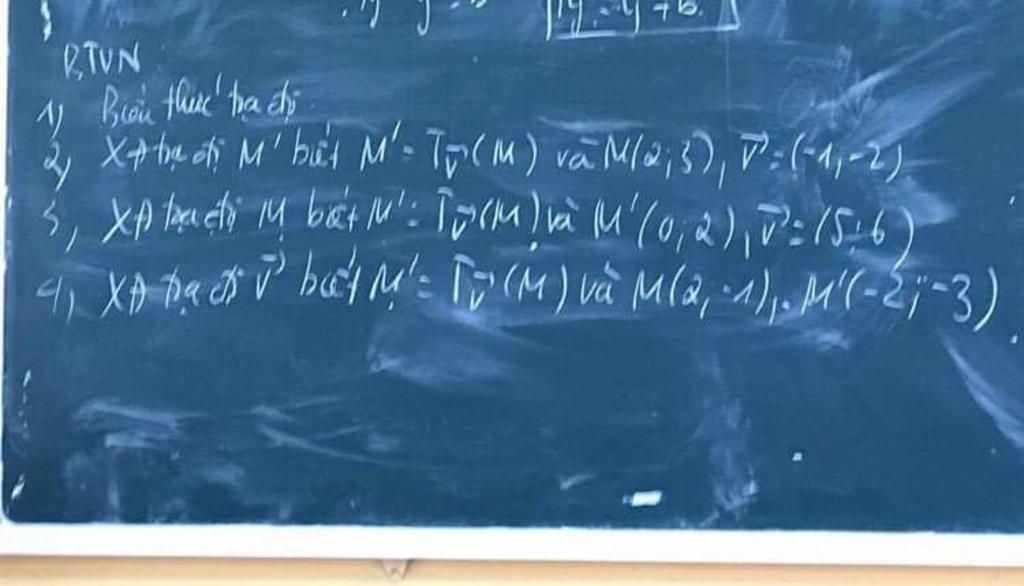 y' = y + b
BTVN
1) Biểu thức tọa độ.
2) XĐ tọa độ M' biết M' = T_v⃗(M) và M(2;3), v⃗ = (-1,-2)
3) XĐ tọa độ M biết M' = T_v⃗(M) và M'(0;2), v⃗ = (5;6)
4) XĐ tọa độ v⃗ biết M' = T_v⃗(M) và M(2,-1), M'(-2;-3)